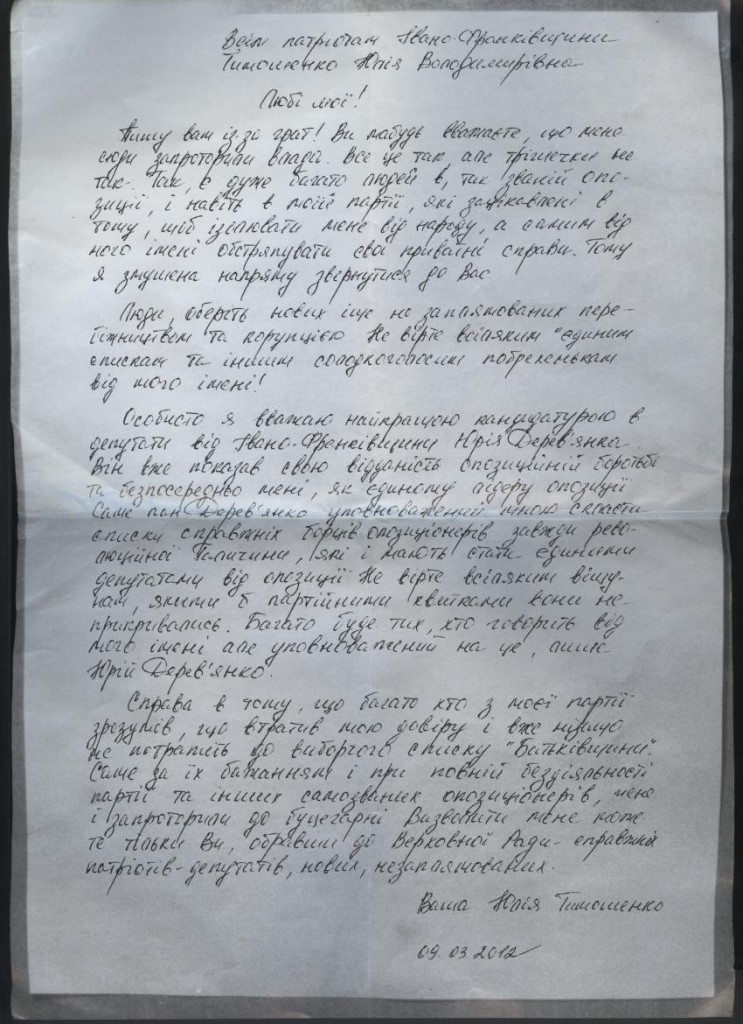 Всім патріотам Івано-Франківщини
Тимошенко Юлія Володимирівна
Любі мої!
Пишу вам із-за грат! Ви мабудь вважаєте, що мене
сюди запроторила влада. Все це так, але трішечки не
так. Так, є дуже багато людей в, так званій опо-
зиції, і навіть в моїй партії, які зацікавлені в
тому, щоб ізолювати мене від народу, а самим від
мого імені обстряпувати свої приватні справи. Тому
я змушена напряму звірнутися до Вас
Люди, оберіть нових іще не заплямованих пере-
біжництвом та корупцією. Не вірте всіляким "єдиним
спискам та іншим солодкоголосим потребенькам
від мого імені!
Особисто я вважаю найкращою кандидатурою в
депутати від Івано-Франківщини Юрія Дерев'янка.
Він вже показав свою відданість опозиційній боротьбі
та безпосередньо мені, як єдиному лідеру опозиції
Саме пан Дерев'янко уповноважений мною скласти
списки справжніх борців опозиціонерів завжди рево-
люційної Галичини, які і мають стати єдиними
депутатами від опозиції Не вірте всіляким віщу-
нам, якими б партійними квитками вони не
прикривались. Багато буде тих, хто говорить від
мого імені але уповноважений на це, лише
Юрій Дерев'янко.
Справа в тому, що багато хто з моєї партії
зрозумів, що втратив мою довіру і вже нізащо
не потрапить до виборчого списку "Батьківщини".
Саме за їх бажанням і при повній бездіяльності
партії та інших самозваних опозиціонерів, мене
і запроторили до буцегарні Визволити мене може
те тільки Ви, обравши до Верховної Ради - справжніх
патріотів-депутатів, нових, незаплямованих.
Ваша Юлія Тимошенко
09.03.2012